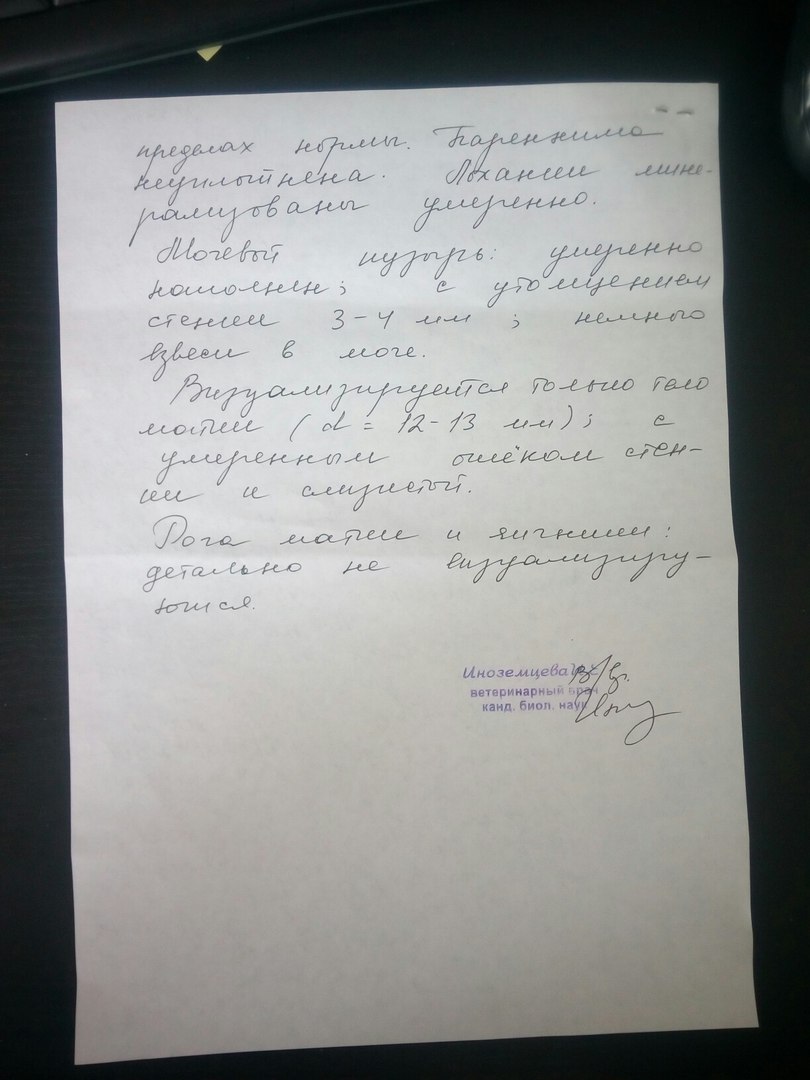 пределах нормы. Паренхима
неуплотнена. Лоханки мине-
рализованы умеренно.
Мочевой пузырь: умеренно
наполнен; с утолщением
стенки 3-4 мм; немного
взвеси в моче.
Визуализируется только тело
матки (d = 12-13 мм); с
умеренным отёком стен-
ки и слизистой.
Рога матки и яичники:
детально не визуализиру-
ются.
Иноземцева
ветеринарный врач
канд. биол. наук